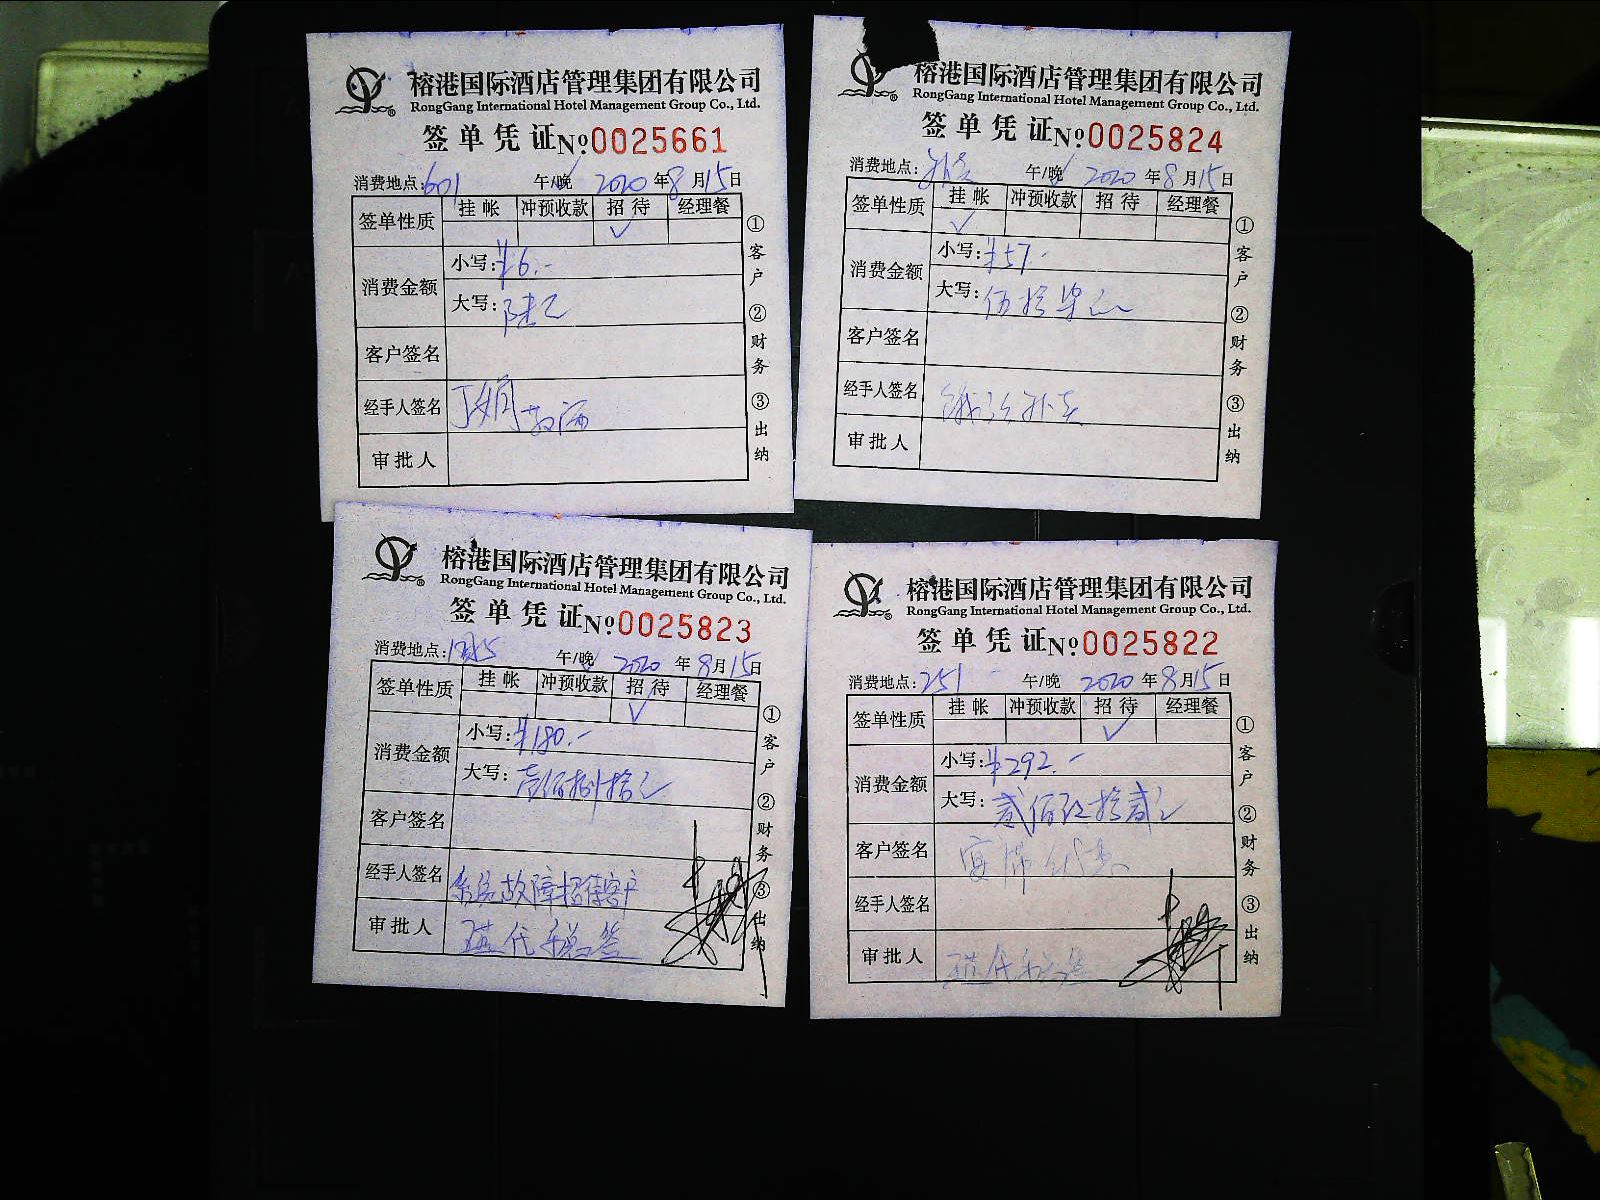 榕港国际酒店管理集团有限公司
RongGang International Hotel Management Group Co., Ltd.
签单凭证 Nº 0025661
消费地点:601 午/晚 2020年8月15日
签单性质 挂帐 冲预收款 招待 经理餐
✓
消费金额
小写:¥6.-
大写:陆元
客户签名
经手人签名 丁娟
审批人
①客户 ②财务 ③出纳
榕港国际酒店管理集团有限公司
RongGang International Hotel Management Group Co., Ltd.
签单凭证 Nº 0025824
消费地点: 午/晚 2020年8月15日
签单性质 挂帐 冲预收款 招待 经理餐
✓
消费金额
小写:¥57.-
大写:伍拾柒元
客户签名
经手人签名
审批人
①客户 ②财务 ③出纳
榕港国际酒店管理集团有限公司
RongGang International Hotel Management Group Co., Ltd.
签单凭证 Nº 0025823
消费地点: 午/晚 2020年8月15日
签单性质 挂帐 冲预收款 招待 经理餐
✓
消费金额
小写:¥180.-
大写:壹佰捌拾元
客户签名
经手人签名 系统故障招待客户
审批人 代 签
①客户 ②财务 ③出纳
榕港国际酒店管理集团有限公司
RongGang International Hotel Management Group Co., Ltd.
签单凭证 Nº 0025822
消费地点:251 午/晚 2020年8月15日
签单性质 挂帐 冲预收款 招待 经理餐
✓
消费金额
小写:¥292.-
大写:贰佰玖拾贰元
客户签名 宴席优惠
经手人签名
审批人 代 签
①客户 ②财务 ③出纳